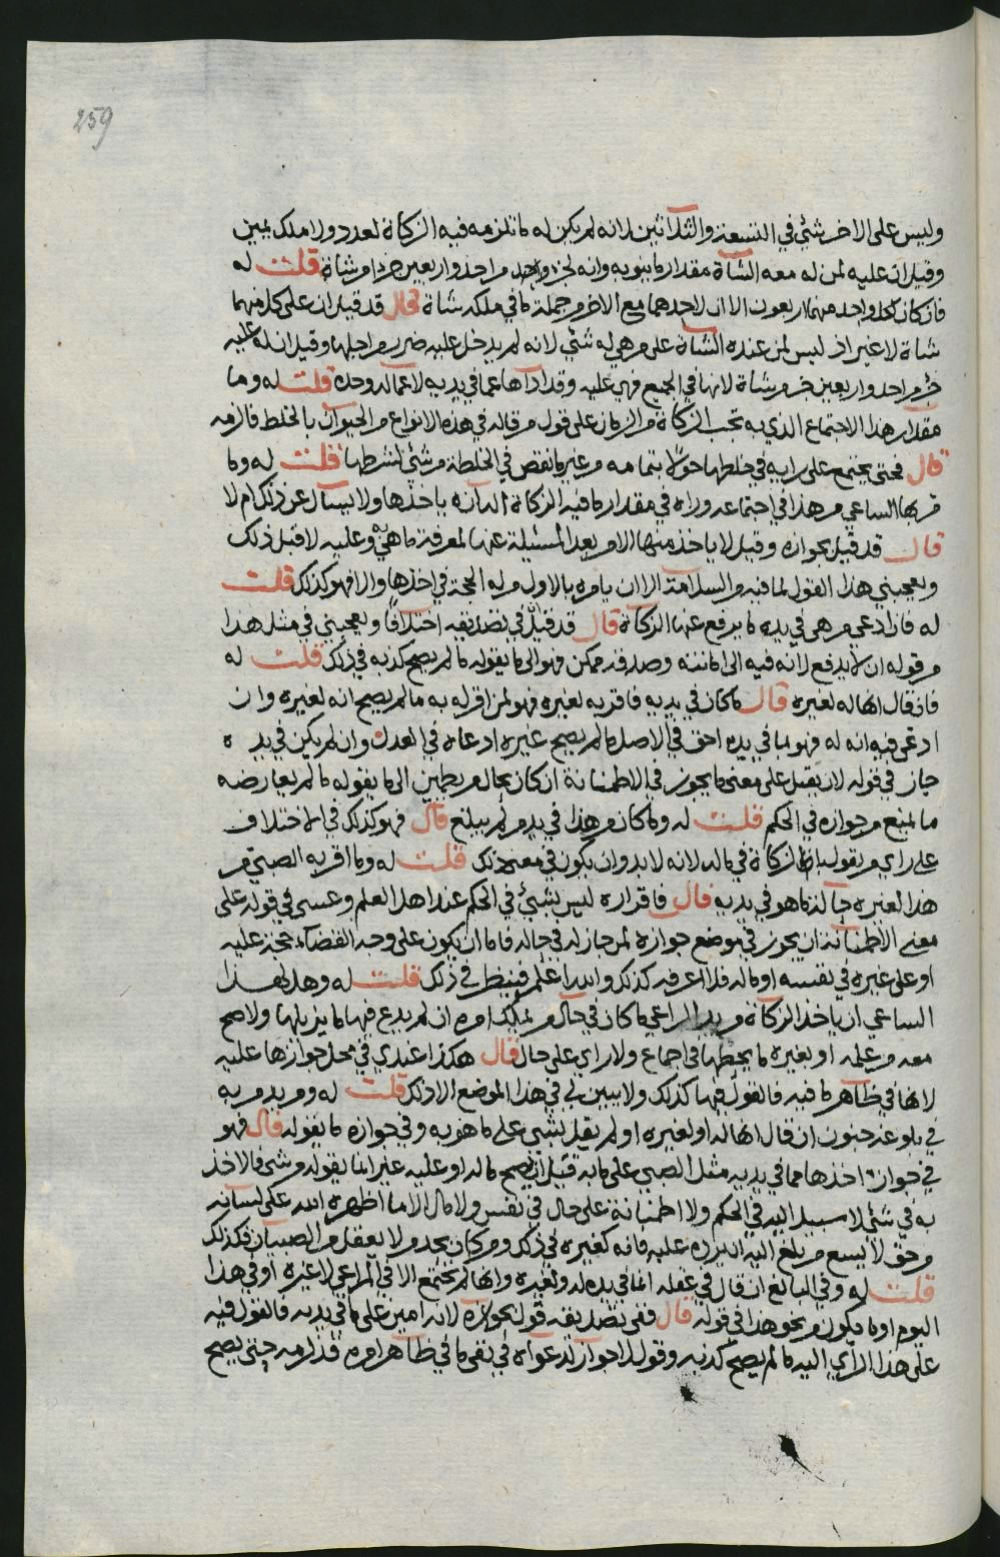 259
وليس على الاخر شئ في التسعة والثلاثين لانه لم يكن له ما تلزمه فيه الزكاة لعدد ولا ملك يمين
وقيل ان عليه لمن له معه الشاة مقدار ما ينوبه وانه لجزء واحد من احد واربعين جزءا من شاة قلت له
فان كان لكل واحد منهما اربعون الا ان لاحدهما مع الاخر من جملة ما في ملكه شاة قال قد قيل ان على كل منهما
شاة لا غير اذ ليس لمن عنده الشاة على من هي له شئ لانه لم يدخل عليه ضرر من اجلها وقيل ان له عليه
جزء من احد واربعين جزء من شاة لانها في الجميع فهي عليه وقد اداها عما في يديه لا عما له وحده قلت له وما
مقدار هذا الاجتماع الذي به تجب الزكاة من الزمان على قول من قاله في هذه الانواع من الحيوان بالخلط فالزمه
قال فحتى يجتمع على رايه في خلطها حولا بتمامه من غير ما نقص في الخلطة من شئ لشرطها قلت له وما
مر بها الساعي من هذا في اجتماعه وراه في مقدار ما فيه الزكاة اله ان ياخذها ولا يسال عن ذلك ام لا
قال قد قيل بجوازه وقيل لا ياخذ منها الا من بعد المسئلة عنها لمعرفة ما هي به وعليه لا قبل ذلك
ويعجبني هذا القول لما فيه من السلامة الا ان يامره بالاول من له الحجة في اخذها والا فهو كذلك قلت
له فان ادعى من هي في يده ما يرفع عنها الزكاة قال قد قيل في تصديقه اختلافا ويعجبني في مثل هذا
من قوله ان لا يدفع لانه فيه الى امانته وصدقه ممكن فهو الى ما يقوله ما لم يصح كذبه في ذلك قلت له
فان قال انها له لغيره قال ما كان في يديه فاقر به لغيره فهو لمن اقر له به ما لم يصح انه لغيره وان
ادعى فيه انه له فهو لما في يده احق في الاصل ما لم يصح غيره ادعاه في العدل وان لم يكن في يده
جاز في قوله لان يقبل على معنى ما يجوز في الاطمئنانة ان كان بحال من يطمئن الى ما يقوله ما لم يعارضه
ما يمنع من جوازه في الحكم قلت له وما كان من هذا في يد من لم يبلغ قال فهو كذلك في الاختلاف
على راي من يقول بالزكاة في ماله لانه لا بد وان يكون في معنى ذلك قلت له وما اقر به الصبي من
هذا لغيره حالة ما هو في يديه قال فاقراره ليس بشئ في الحكم عند اهل العلم وعسى في قوله على
معنى الاطمئنانة ان يجوز في موضع جوازه لمن جاز له في حاله فاما ان يكون على وجه القضاء حجة عليه
او على غيره في نفسه او ماله فلا اعرفه كذلك والله اعلم فينظر في ذلك قلت له وهل لهذا
الساعي ان ياخذ الزكاة من يد الراعي ما كان في حال من يملك امره ان لم يدع فيها ما يزيلها ولا صح
معه من علمه او بغيره ما يحطها في اجماع ولا راي على حال قال هكذا عندي في محل جوازها عليه
لانها في ظاهر ما فيه فالقول فيها كذلك ولا يبين لي في هذا الموضع الا ذلك قلت له ومن يد من به
في بلوغه جنون ان قال انها له او لغيره او لم يقل بشئ على ما هو به وفي جوازه ما يقوله قال فهو
في جواز اخذها مما في يديه مثل الصبي على ما به قيل ان يصح ماله او عليه غير انما يقوله من شئ فالاخذ
به في شئ لا سبيل اليه في الحكم ولا اطمئنانة على حال في نفس ولا مال الا ما اظهره الله على لسانه
من حق لا يسع من بلغ اليه ان يرده عليه فانه كغيره في ذلك ومن كان بحد من لا يعقل من الصبيان فكذلك
قلت له وفي البالغ ان قال في عقله انما في يده له ولغيره وانها لم تجتمع الا في المراعي لا غيره او في هذا
اليوم او ما يكون من نحو هذا في قوله قال ففي تصديقه قول بجوازه لانه امين على ما في يديه فالقول فيه
على هذا الراي اليه ما لم يصح كذبه وقول لا جواز لدعواه في نفي ما في ظاهر امره قد لزمه حتى يصح